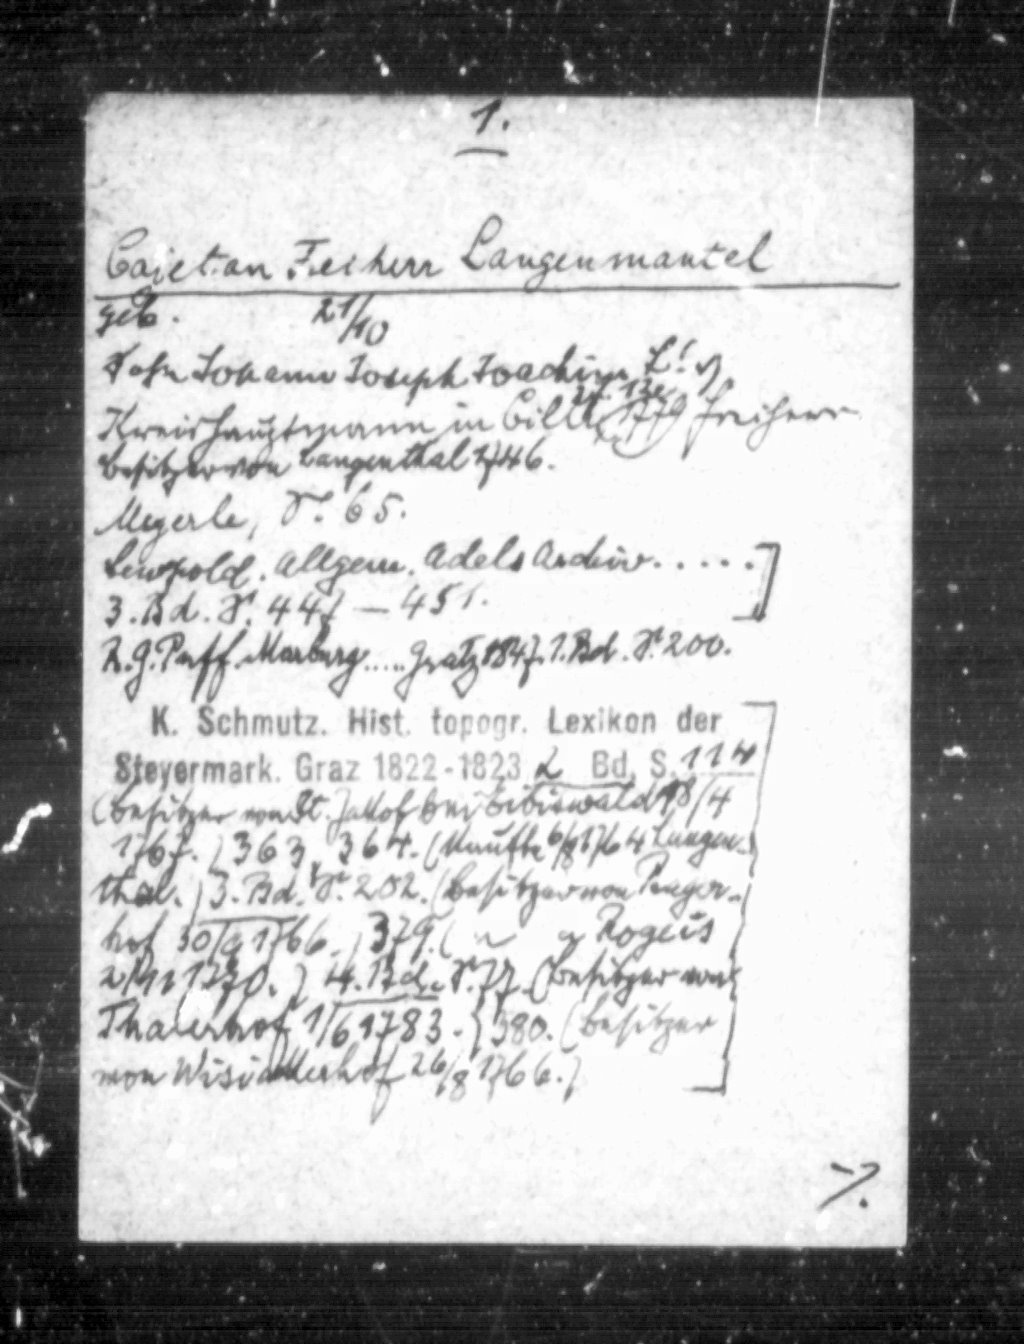 1.
Cajetan Freiherr Langenmantel
geb. 21/10
Sohn Johann Joseph Joachim L!
Kreishauptmann in Cilli Freiherr
Besitzer von Langenthal 1746.
Megerle, S. 65.
Leupold. Allgem. Adels Archiv.....]
3. Bd. S. 447 — 451.
R. G. Puff. Marburg..... Gratz 1847. 1. Bd. S. 200.
K. Schmutz. Hist. topogr. Lexikon der
Steyermark. Graz 1822-1823 2 Bd. S. 114
(Besitzer von St. Jakob bei Eibiswald 18/4
1767.) 363, 364. (Kaufte 6/8 1764 Langen-
thal.) 3. Bd. S. 202. (Besitzer von Prager-
hof 30/9 1766.) 379. ( " " Rogeis
2/11 1770.) 4. Bd. S. 77. (Besitzer von
Thalerhof 1/6 1783.) 380. (Besitzer
von Wisiallerhof 26/8 1766.)
./.